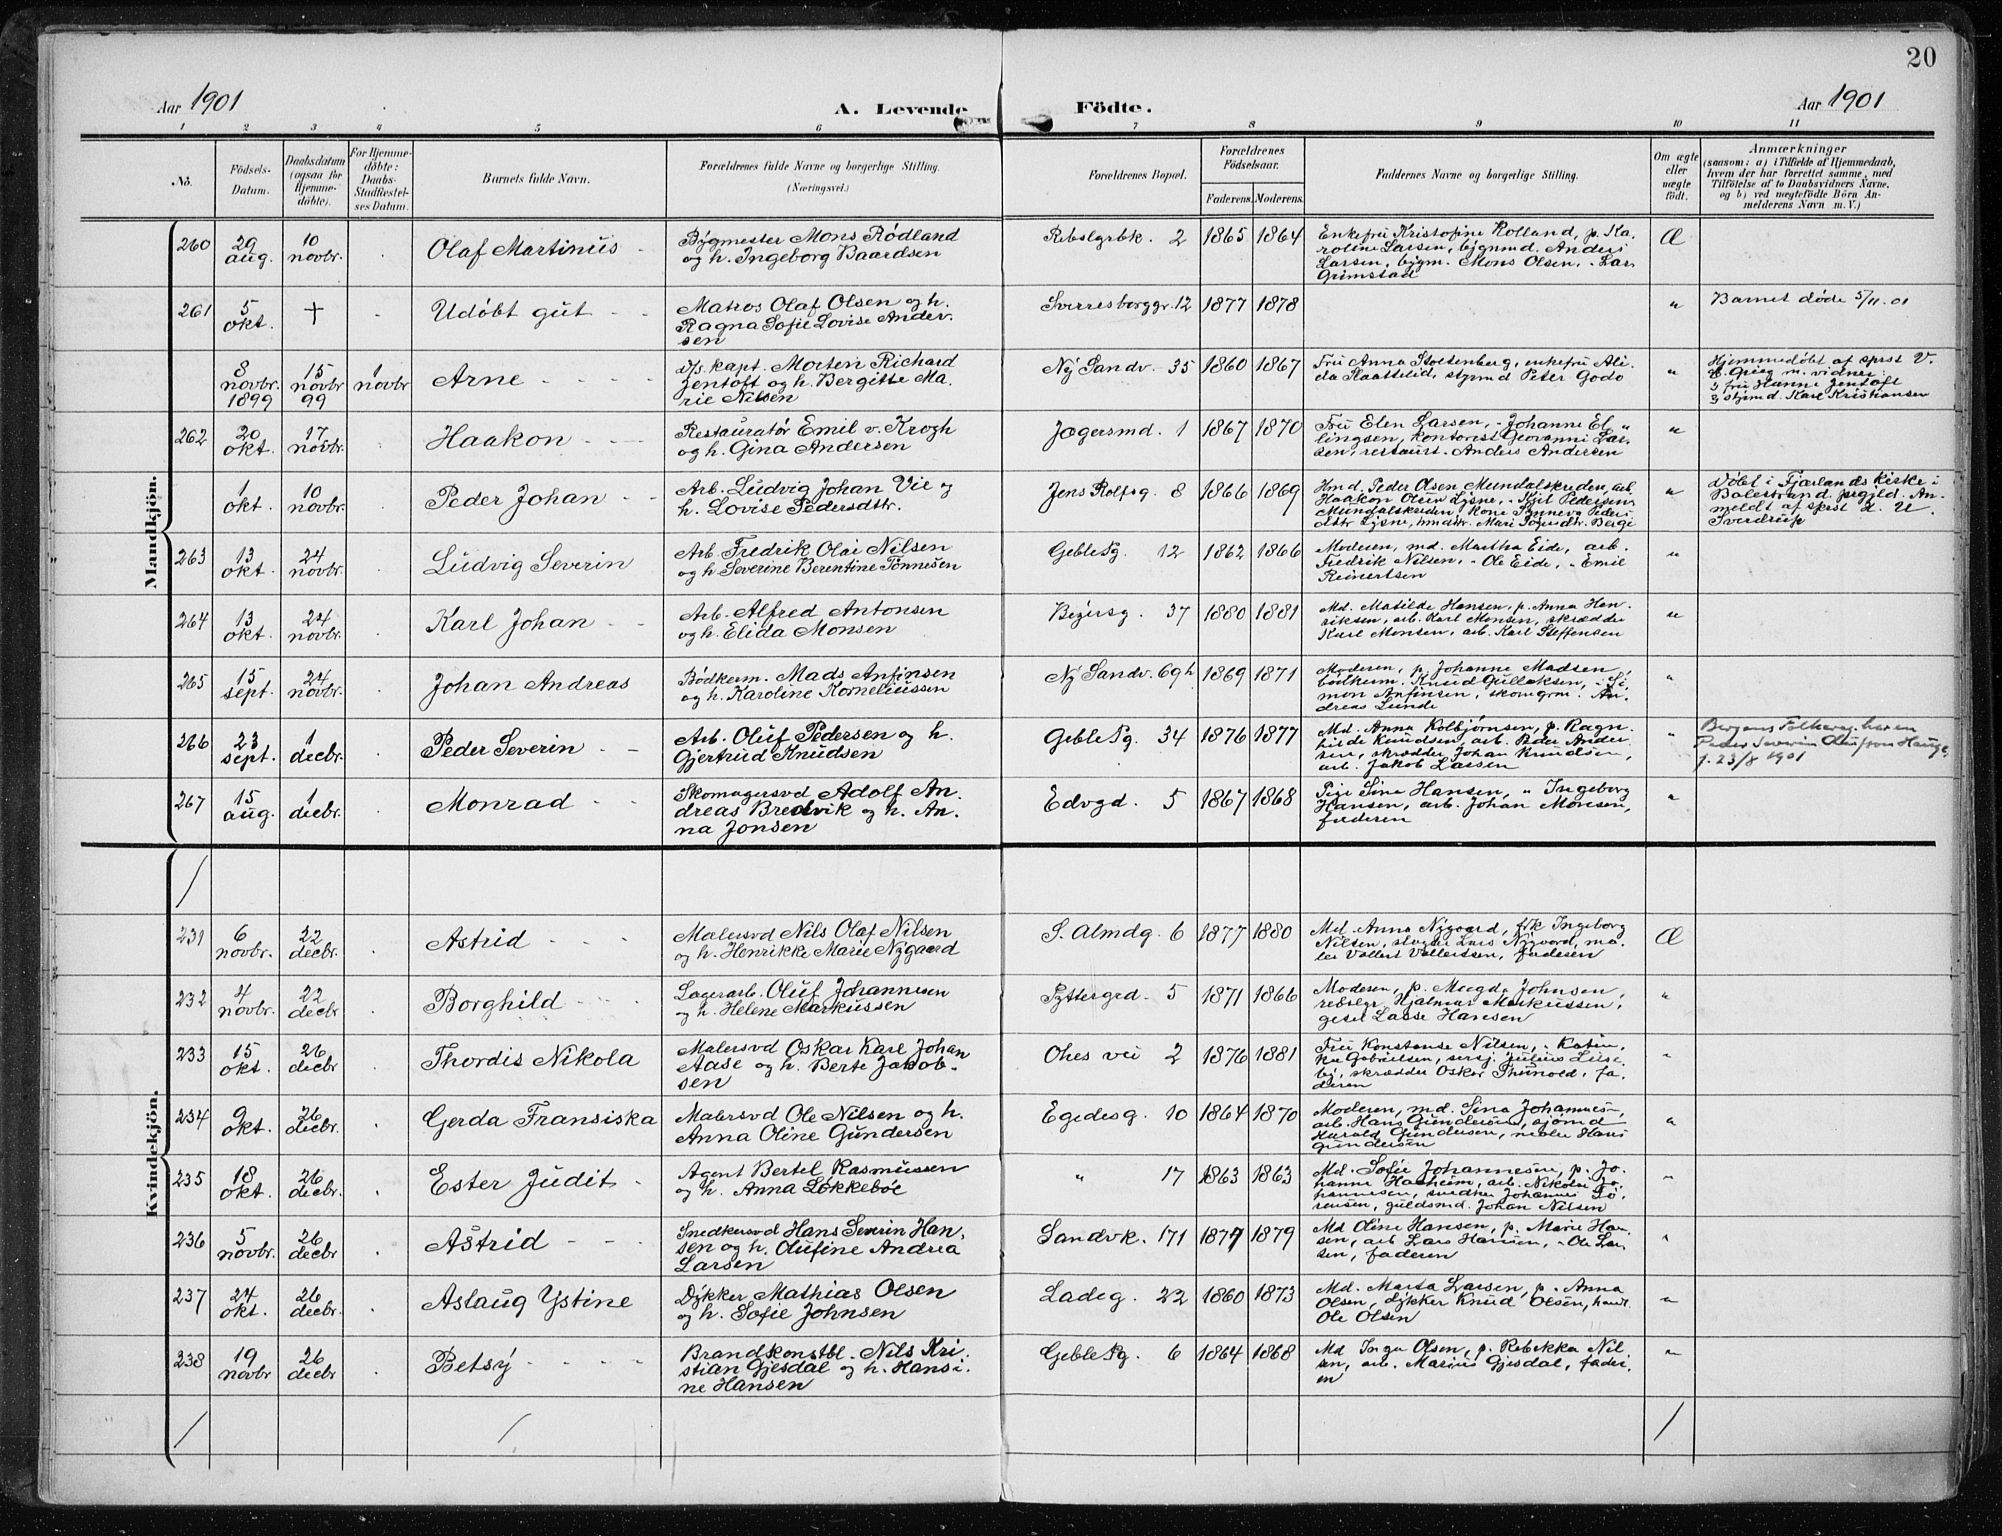 20
Aar 1901
A. Levende Födte.
Aar 1901
1 2 3 4 5 6 7 8 9 10 11
No.
Födsels-
Datum.
Daabsdatum
(ogsaa for
Hjemme-
döbte).
For Hjemme-
döbte:
Daabs-
Stadfestel-
ses Datum.
Barnets fulde Navn.
Forældrenes fulde Navne og borgerlige Stilling.
(Næringsvei.)
Forældrenes Bopæl.
Forældrenes
Födselsaar.
Faderens. Moderens.
Faddernes Navne og borgerlige Stilling.
Om ægte
eller
uægte
födt.
Anmærkninger
(saasom: a) i Tilfælde af Hjemmedaab,
hvem der har forrettet samme, med
Tilföielse af to Daabsvidners Navne,
og b) ved uægtefödte Börn An-
melderens Navn m. V.)
Mandkjön.
260
29
aug.
10
novbr.
Olaf Martinus
Bygmester Mons Rødland
og h. Ingeborg Baardsen
Rebslgrbk. 2
1865 1864
Enkefru Kristofine Rolland, p. Ka-
roline Larsen, bygmd. Anders
Larsen, bygm. Mons Olsen, - Lars
Grimstad
Æ
261
5
okt.
+
Udøbt gut
Matros Olaf Olsen og h.
Ragna Sofie Lovise Ander-
sen
Sverresborggr. 12
1877 1878
"
Barnet døde 5/11.01
8
novbr.
1899
15
novbr
99
1
novbr
Arne
d/s. kapt. Morten Richard
Zentoft og h. Bergitte Ma-
rie Nilsen
Ny Sandv. 35
1860 1867
Fru Anna Stoltenberg, enkefru Ali-
da Kaatselid, styrmd Peter Godo
"
Hjemmedøbt af sprst V.
C. Grieg m. vidner:
fru Hanne Zentoft
styrmd. Karl Kristiansen
262
20
okt.
17
novbr.
Haakon
Restauratør Emil v. Krogh
og h. Gina Andersen
Jægersmd. 1
1867 1870
Fru Elen Larsen, - Johanne El-
lingsen, kontorist Geovanni Lar-
sen, restaurt. Anders Andersen
"
1
okt.
10
novbr.
Peder Johan
Arb. Ludvig Johan Vie og
h. Lovise Pedersdtr.
Jens Rolfsg. 8
1866 1869
Hmd. Peder Olsen Mundalskreden, arb.
Haakon Olsen Lysne, - Kjit Pedersen
Mundalskreden, kone Synneva Peders-
dtr Lysne, hmdtr. Mari Sogndtr. Berge
"
Døbt i Fjærlands kirke i
Balestrand prgjld. An-
meldt af sprst H. U.
Sverdrup
263
13
okt.
24
novbr.
Ludvig Severin
Arb. Fredrik Olai Nilsen
og h. Severine Berentine Tønnesen
Geble Pg. 12
1862 1866
Moderen, md. Martha Eide, arb.
Fredrik Nilsen, - Ole Eide, - Emil
Reinertsen
"
264
13
okt.
24
novbr.
Karl Johan
Arb. Alfred Antonsen
og h. Elida Monsen
Bezirsg. 37
1880 1881
Md. Matilde Hansen, p. Anna Hen-
riksen, arb. Karl Monsen, skrædder
Karl Monsen, arb. Karl Steffensen
"
265
15
sept.
24
novbr.
Johan Andreas
Bødkerm. Mads Anfinsen
og h. Karoline Korneliussen
Ny Sandv. 69h
1869 1871
Moderen, p. Johanne Madsen,
bødkerm. Knud Gullaksen, - Si-
mon Anfinsen, skomgrm. An-
dreas Lunde
"
266
23
sept.
1
decbr.
Peder Severin
Arb. Oluf Pedersen og h.
Gjertrud Knudsen
Geble Pg. 34
1876 1877
Md. Anna Kolbjørnsen, p. Ragn-
hilde Knudsen, arb. Peder Ander-
sen, skrædder Johan Knudsen,
arb. Jakob Larsen
"
Bergens Folkereg. har en
Peder Severin Olufson Hauge,
f. 23/8 1901
267
15
aug.
1
decbr.
Monrad
Skomagersvd Adolf An-
dreas Bredvik og h. An-
na Jonsen
Edvgd. 5
1867 1868
Pige Sina Hansen, " Ingeborg
Hansen, arb. Johan Monsen,
faderen
"
Kvindekjön.
/
231
6
novbr.
22
decbr.
Astrid
Malersvd Nils Olaf Nilsen
og h. Henrikke Marie Nygaard
S. Almdg. 6
1877 1880
Md. Anna Nygaard, frk Ingeborg
Nilsen, slagter Lars Nygaard, ma-
ler Vollert Vollertsen, faderen
Æ
232
4
novbr.
22
decbr
Borghild
Lagerarb. Oluf Johannesen
og h. Helene Markussen
Yttergrd. 5
1871 1866
Moderen, p. Magda Johnsen,
rebslgr Hjalmar Markussen,
gesel Lasse Hansen
"
233
15
okt.
26
decbr
Thordis Nikola
Malersvd Oskar Karl Johan
Aase og h. Berte Jakob-
sen
Ohes vei 2
1876 1881
Fru Konstanse Nilsen, - Katin-
ka Gabrielsen, sersj. Julius Luse-
by, skrædder Oskar Thunold, fa-
deren
"
234
9
okt.
26
decbr.
Gerda Fransiska
Malersvd Ole Nilsen og h.
Anna Oline Gundersen
Egedesg. 10
1864 1870
Moderen, md. Sina Johannes-,
arb. Hans Gundersen, sjømd
Harald Gundersen, maler Hans
Gundersen
"
235
18
okt.
26
decbr.
Ester Judit
Agent Bertel Rasmussen
og h. Anna Løkkebøe
" 17
1863 1863
Md. Sofie Johannesen, p. Jo-
hanne Hasheim, arb. Nikolai Jo-
hannesen, snedker Johannes Sö-
rensen, guldsmd. Johan Nilsen
"
236
5
novbr.
26
decbr
Astrid
Snedkersvd Hans Severin Han-
sen og h. Olufine Andrea
Larsen
Sandvk. 171
1877 1879
Md Oline Hansen, p. Marie Han-
sen, arb Lars Hansen, - Ole Lar-
sen, faderen
"
237
24
okt.
26
decbr.
Aslaug Ystine
Dykker Mathias Olsen
og h. Sofie Johnsen
Ladeg. 22
1860 1873
Md. Marta Larsen, p. Anna
Olsen, dykker Knud Olsen, handl.
Ole Olsen
"
238
19
novbr
26
decbr
Betsy
Brandkonstbl. Nils Kri-
stian Gjesdal og h. Hansi-
ne Hansen
Geble Pg. 6
1864 1868
Md Inga Olsen, p. Rebekka Nil-
sen, arb. Marius Gjesdal, fader-
en
"
/ / /